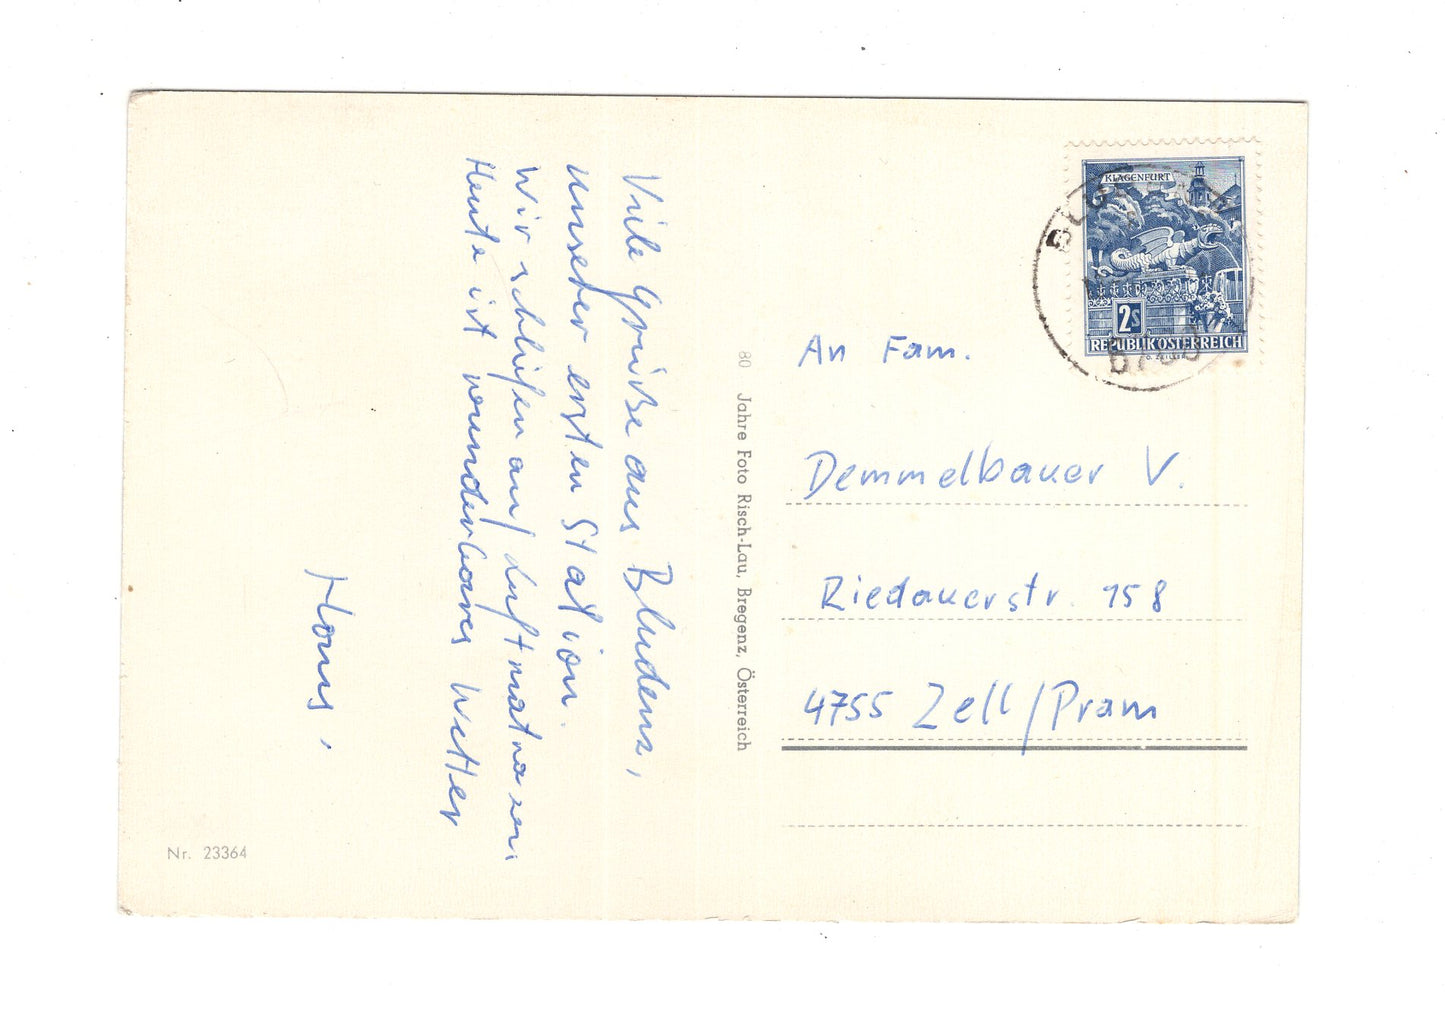 Viele Grüße aus Bludenz,
unserer ersten Station.
Wir schlafen auf Luftmatrazen.
Heute ist wunderbares Wetter
Hans,
Nr. 23364
80 Jahre Foto Risch-Lau, Bregenz, Österreich
KLAGENFURT
2S
REPUBLIK ÖSTERREICH
An Fam.
Demmelbauer V.
Riedauerstr. 158
4755 Zell/Pram